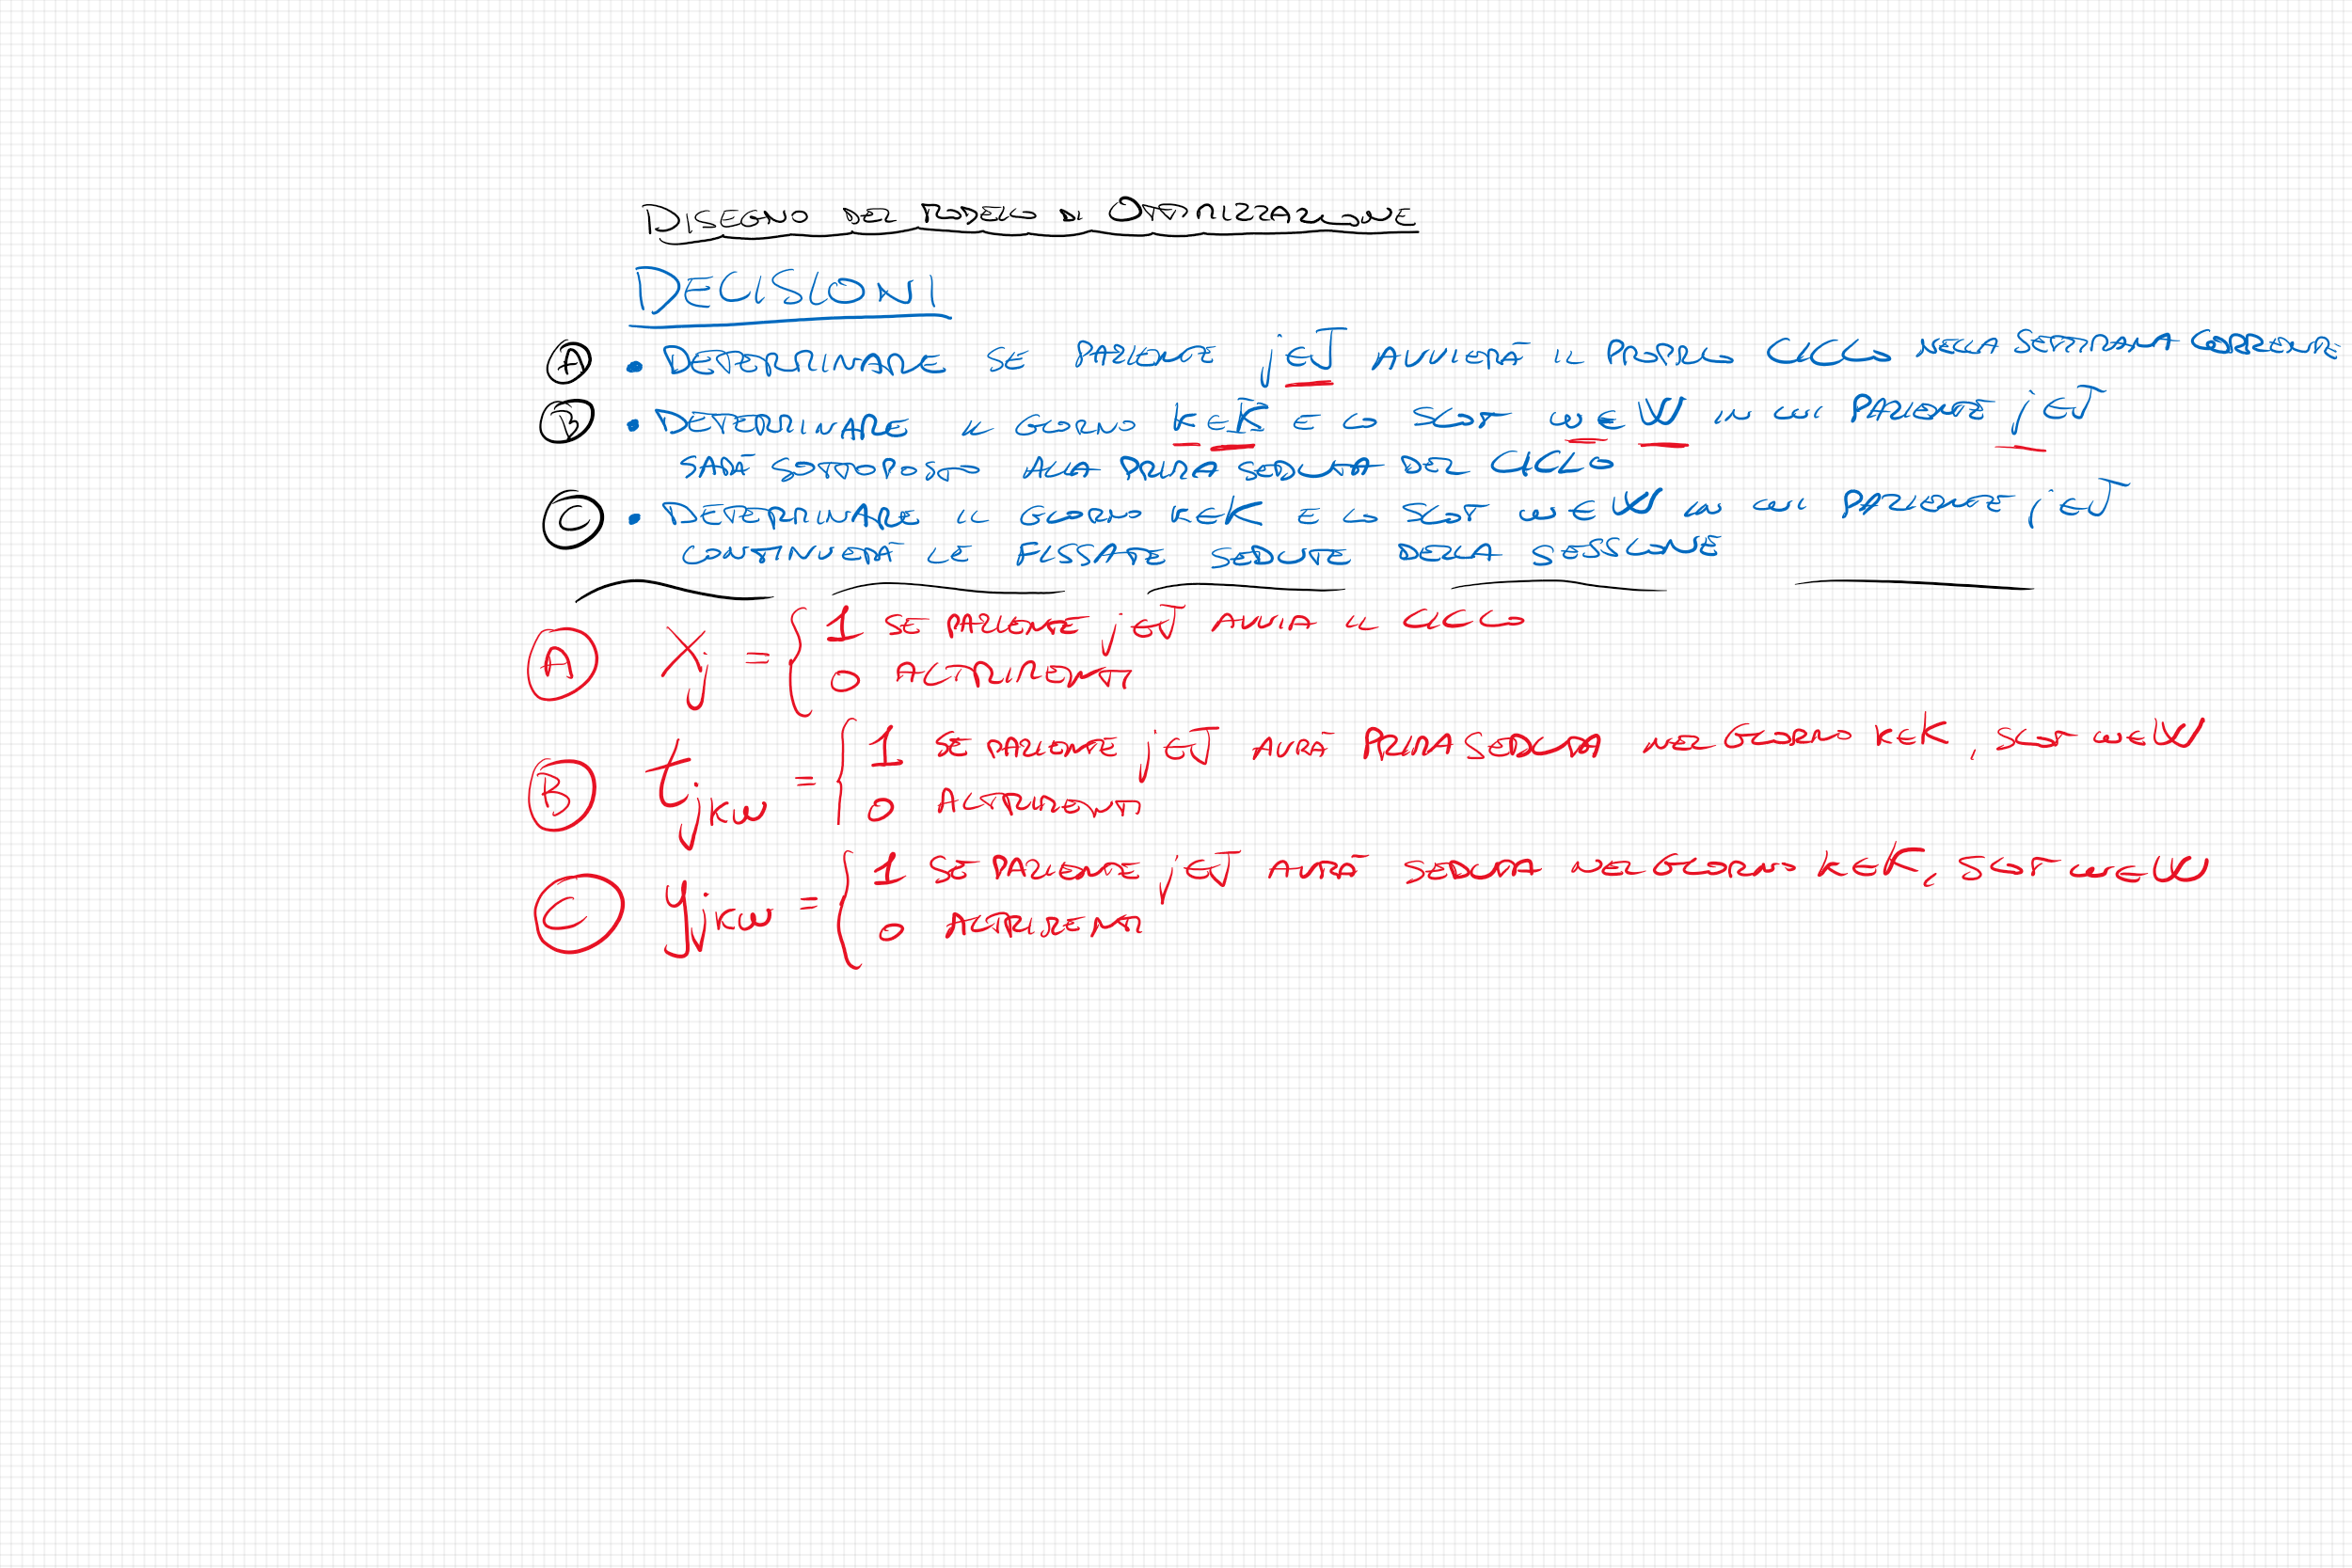 DISEGNO DEL MODELLO DI OTTIMIZZAZIONE
DECISIONI
A • DETERMINARE SE PAZIENTE j∈J AVVIERÀ IL PROPRIO CICLO NELLA SETTIMANA CORRENTE
B • DETERMINARE IL GIORNO k∈K E LO SLOT w∈W IN CUI PAZIENTE j∈J
SARÀ SOTTOPOSTO ALLA PRIMA SEDUTA DEL CICLO
C • DETERMINARE IL GIORNO k∈K E LO SLOT w∈W IN CUI PAZIENTE j∈J
CONTINUERÀ LE FISSATE SEDUTE DELLA SESSIONE
A xj = { 1 SE PAZIENTE j∈J AVVIA IL CICLO
0 ALTRIMENTI
B tjkw = { 1 SE PAZIENTE j∈J AVRÀ PRIMA SEDUTA NEL GIORNO k∈K, SLOT w∈W
0 ALTRIMENTI
C yjkw = { 1 SE PAZIENTE j∈J AVRÀ SEDUTA NEL GIORNO k∈K, SLOT w∈W
0 ALTRIMENTI